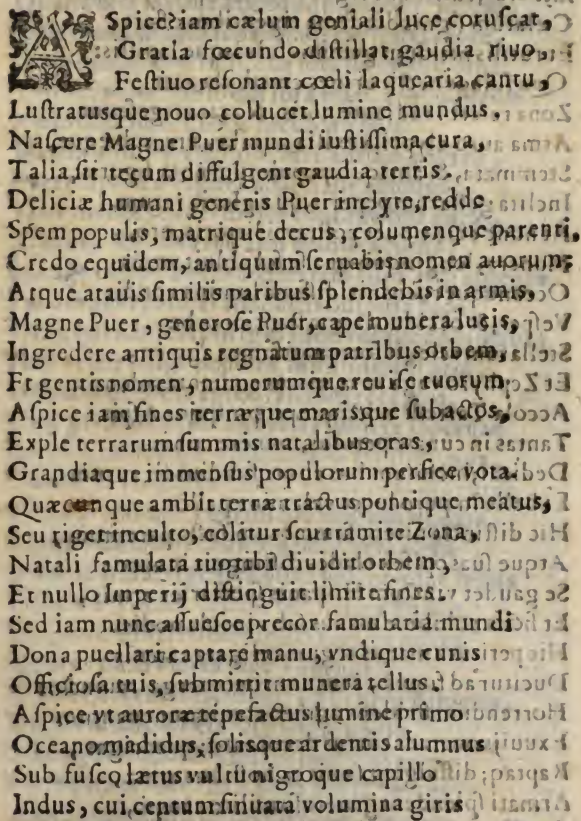 ASpice? iam cælum geniali luce coruscat,
Gratia fœcundo distillat gaudia riuo,
Festiuo resonant cœli laquearia cantu,
Lustratusque nouo collucet lumine mundus,
Nascere Magne Puer mundi iustissima cura,
Talia sit tecum diffulgent gaudia terris,
Deliciæ humani generis Puer inclyte, redde
Spem populis, matrique decus, columenque parenti,
Credo equidem, antiquum seruabis nomen auorum,
Atque atauis similis paribus splendebis in armis,
Magne Puer, generose Puer, cape munera lucis,
Ingredere antiquis regnatum patribus orbem,
Et gentis nomen, numerumque reuise tuorum,
Aspice iam fines terræque marisque subactos,
Exple terrarum summis natalibus oras,
Grandiaque immensus populorum perfice vota.
Quæcunque ambit terræ tractus pontique meatus,
Seu riget inculto, colitur seu tramite Zona,
Natali famulata tuo tibi diuidit orbem,
Et nullo Imperij distinguit limite fines.
Sed iam nunc assuesce precor famulatia mundi
Dona puellari captare manu, vndique cunis
Officiosa tuis, submittit munera tellus,
Aspice vt auroræ tepefactus lumine primo
Oceano madidus, solisque ardentis alumnus
Sub fusco lætus vultu nigroque capillo
Indus, cui centum sinuata volumina giris